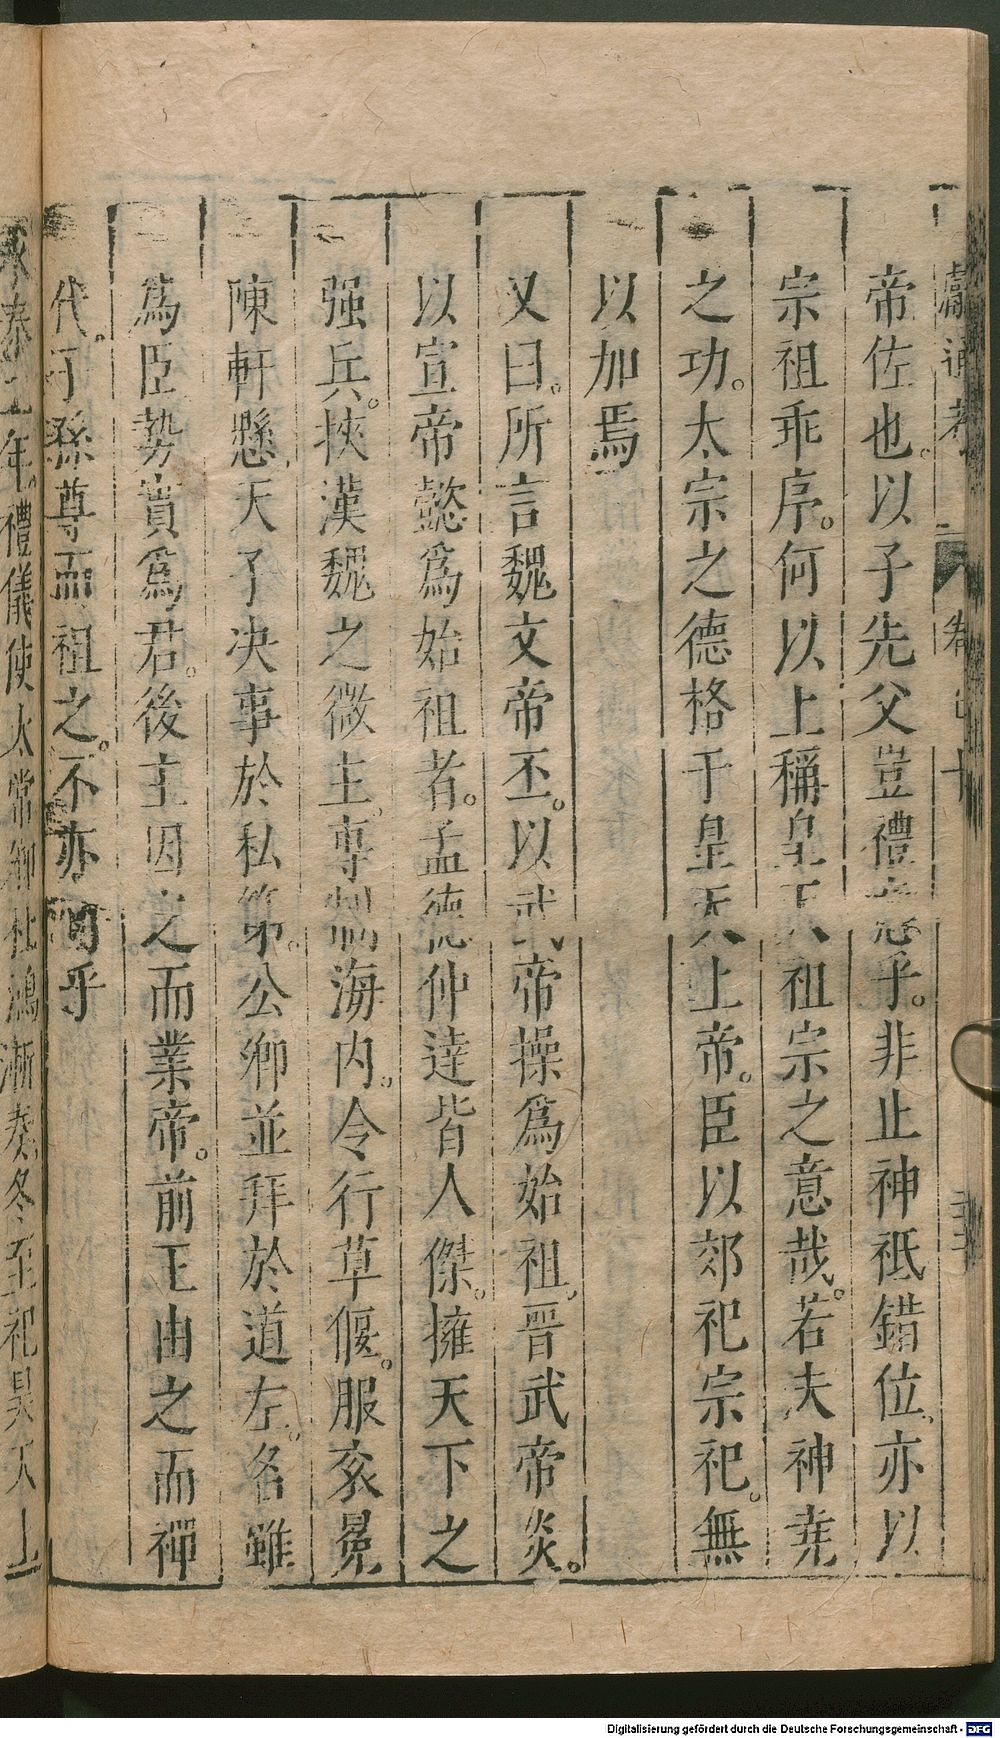 獻通考 卷七十
帝佐也。以子先父豈禮意乎。非止神祗錯位、亦以
宗祖乖序。何以上稱皇天祖宗之意哉。若夫神堯
之功。太宗之德格于皇天上帝。臣以郊祀宗祀。無
以加焉
又曰。所言魏文帝丕。以武帝操爲始祖、晉武帝炎。
以宣帝懿爲始祖者。孟德仲達皆人傑。擁天下之
强兵。挾漢魏之微主、專制海内、令行草偃。服衮冕
陳軒懸、天子决事於私第。公卿並拜於道左、名雖
爲臣勢實爲君。後主因之而業帝。前王由之而禪
代。子孫尊而祖之。不亦可乎
永泰二年、禮儀使太常卿杜鴻漸奏、冬至祀昊天上
Digitalisierung gefördert durch die Deutsche Forschungsgemeinschaft - DFG